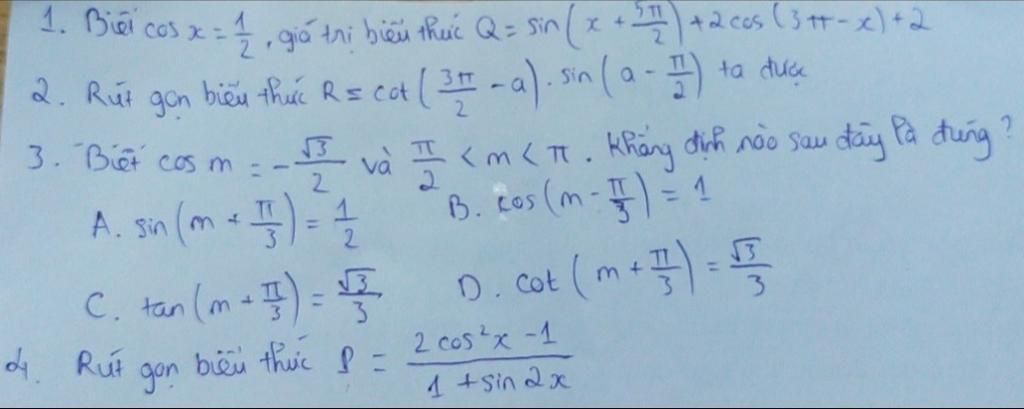 1. Biết cos x = 1/2, giá trị biểu thức Q = sin(x + 5π/2) + 2cos(3π - x) + 2
2. Rút gọn biểu thức R = cot(3π/2 - a) . sin(a - π/2) ta được
3. Biết cos m = -√3/2 và π/2 < m < π. Khẳng định nào sau đây là đúng?
A. sin(m + π/3) = 1/2 B. cos(m - π/3) = 1
C. tan(m + π/3) = √3/3 D. cot(m + π/3) = √3/3
4. Rút gọn biểu thức P = (2cos²x - 1)/(1 + sin 2x)